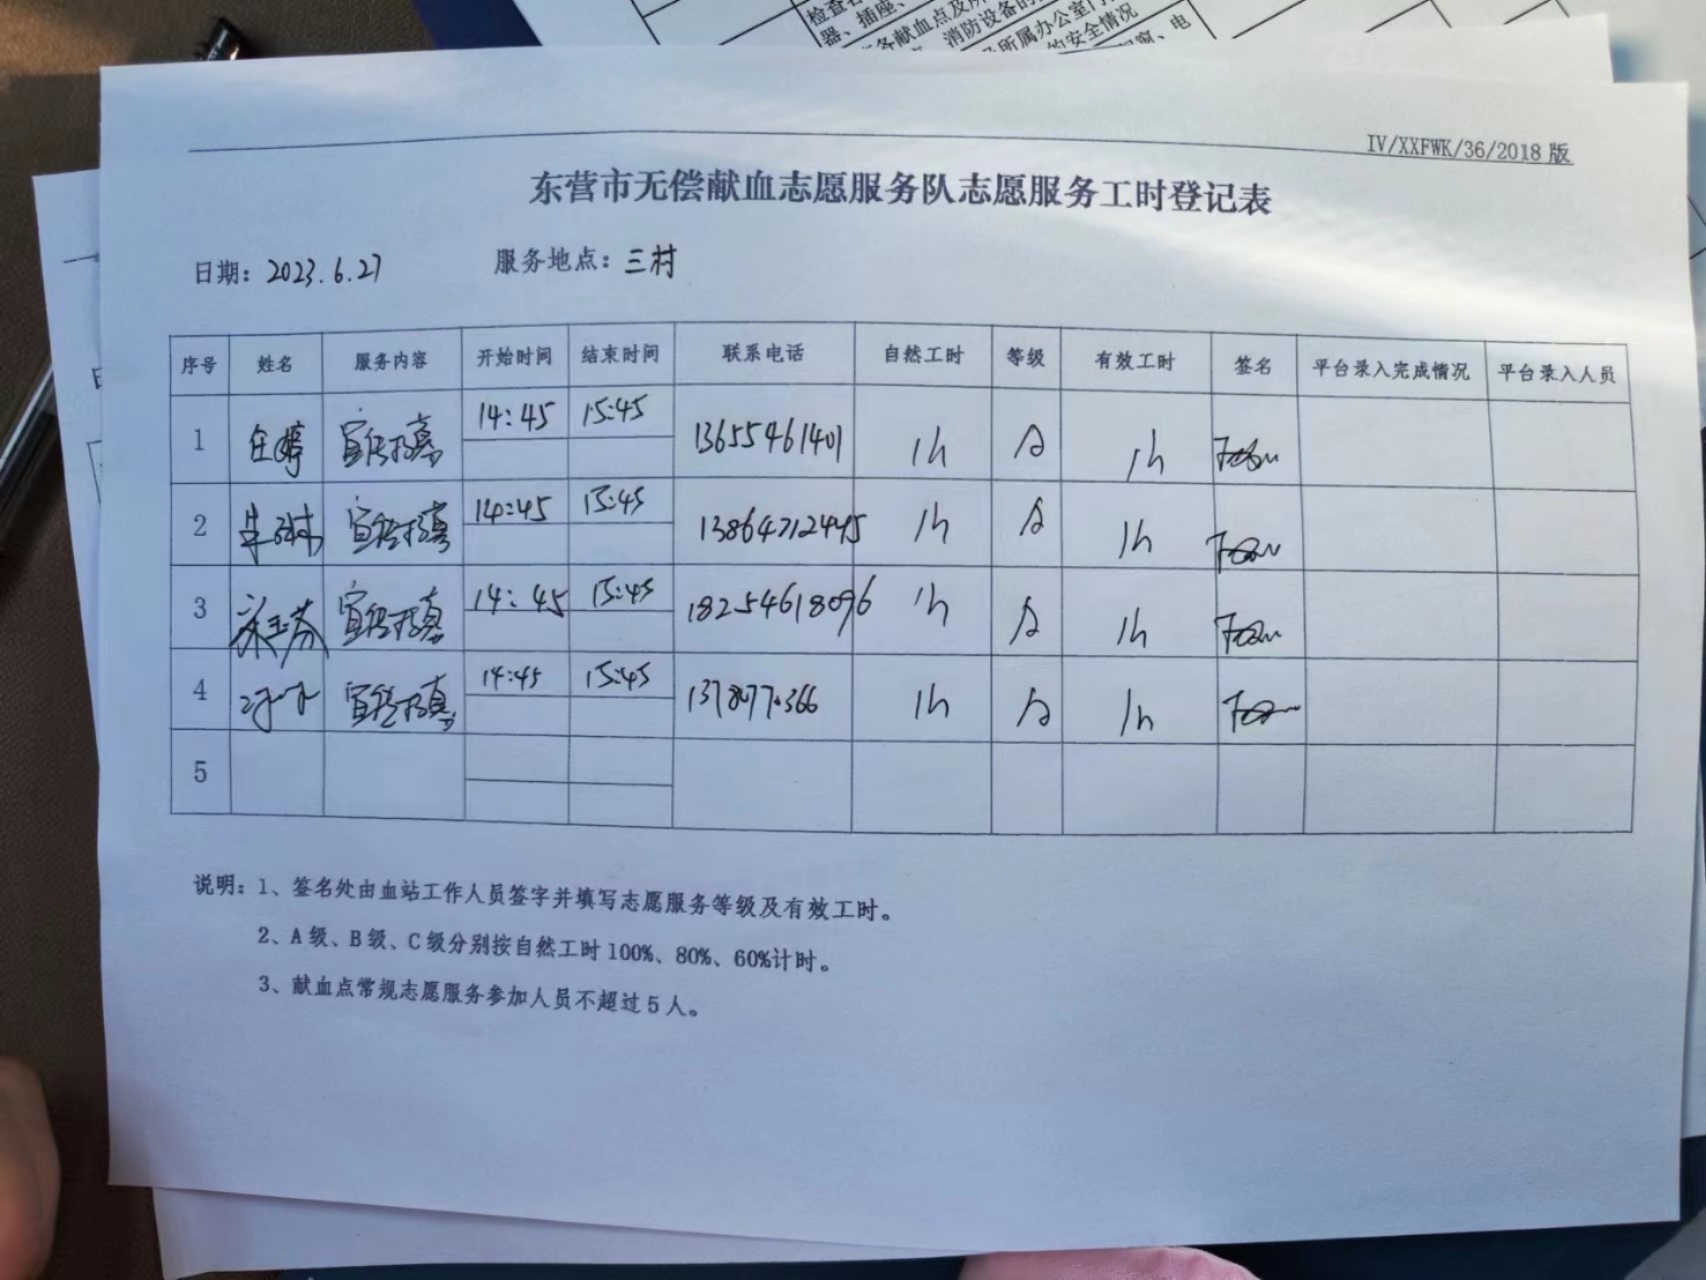 检查各
器、插座、
各献血点及所
消防设备的
及所属办公室门
的安全情况
窗、电
IV/XXFWK/36/2018 版
东营市无偿献血志愿服务队志愿服务工时登记表
日期：2023.6.27 服务地点：三村
序号 姓名 服务内容 开始时间 结束时间 联系电话 自然工时 等级 有效工时 签名 平台录入完成情况 平台录入人员
1 宣传招募 14:45 15:45 13655461401 1h A 1h
2 宣传招募 14:45 15:45 1h A 1h
3 宣传招募 14:45 15:45 18254618096 1h A 1h
4 宣传招募 14:45 15:45 1h A 1h
5
说明：1、签名处由血站工作人员签字并填写志愿服务等级及有效工时。
2、A 级、B 级、C 级分别按自然工时 100%、80%、60%计时。
3、献血点常规志愿服务参加人员不超过 5 人。